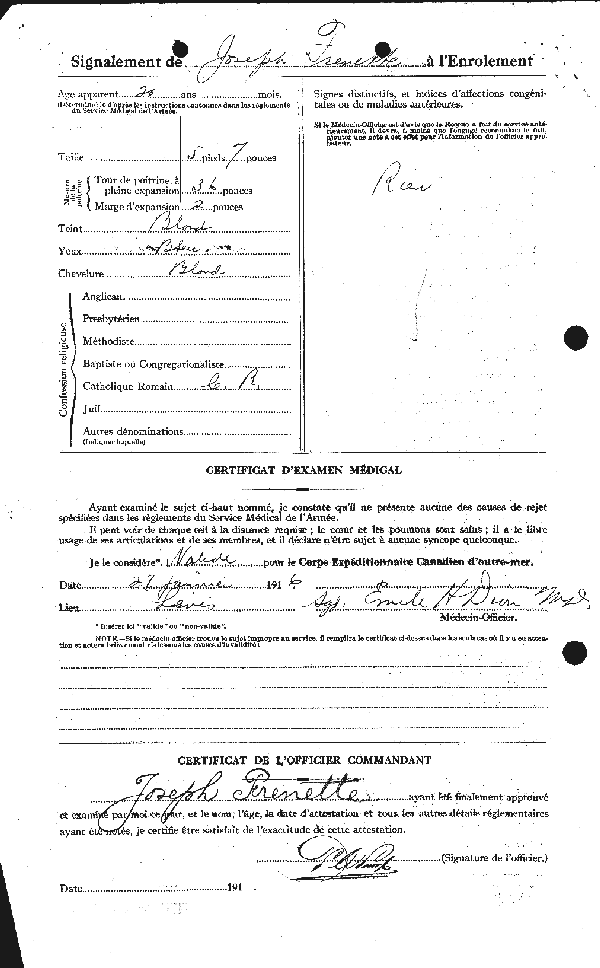 Signalement de Joseph Frenette à l'Enrolement
Age apparent 20 ans mois.
(Détermine d'après les instructions contenues dans les règlements
du Service Médical de l'Armée.
Taille 5 pieds 7 pouces
Mesure de la poitrine
Tour de poitrine à
pleine expansion 36 pouces
Marge d'expansion 2 pouces
Teint Blond
Yeux Bleu
Chevelure Blond
Confession religieuse
Anglican
Presbytérien
Méthodiste
Baptiste ou Congregationaliste
Catholique Romain C. R.
Juif
Autres dénominations
(Indiquer laquelle)
Signes distinctifs, et indices d'affections congéni-
tales ou de maladies antérieures.
Si le Médecin-Officier est d'avis que la Recrue a fait du service anté-
rieurement, il devra, à moins que l'engagé reconnaisse le fait,
ajouter une note à cet effet pour l'information de l'officier appro-
bateur.
Rien
CERTIFICAT D'EXAMEN MÉDICAL
Ayant examiné le sujet ci-haut nommé, je constate qu'il ne présente aucune des causes de rejet
spécifiées dans les règlements du Service Médical de l'Armée.
Il peut voir de chaque œil à la distance requise ; le cœur et les poumons sont sains ; il a le libre
usage de ses articulations et de ses membres, et il déclare n'être sujet à aucune syncope quelconque.
Je le considère* Valide pour le Corps Expéditionnaire Canadien d'outre-mer.
Date 1916
Lieu Lévis Sgt. Emile H Dion
Médecin-Officier.
* Insérer ici "valide" ou "non-valide".
NOTE.—Si le médecin officier trouve le sujet impropre au service, il remplira le certificat ci-dessus dans les cas où il y eu atten-
tion et notera brièvement les causes d'invalidité:
CERTIFICAT DE L'OFFICIER COMMANDANT
Joseph Frenette ayant été finalement approuvé
et examiné par moi ce jour, et le nom, l'âge, la date d'attestation et tous les autres détails réglementaires
ayant été notés, je certifie être satisfait de l'exactitude de cette attestation.
(Signature de l'officier.)
Date 191